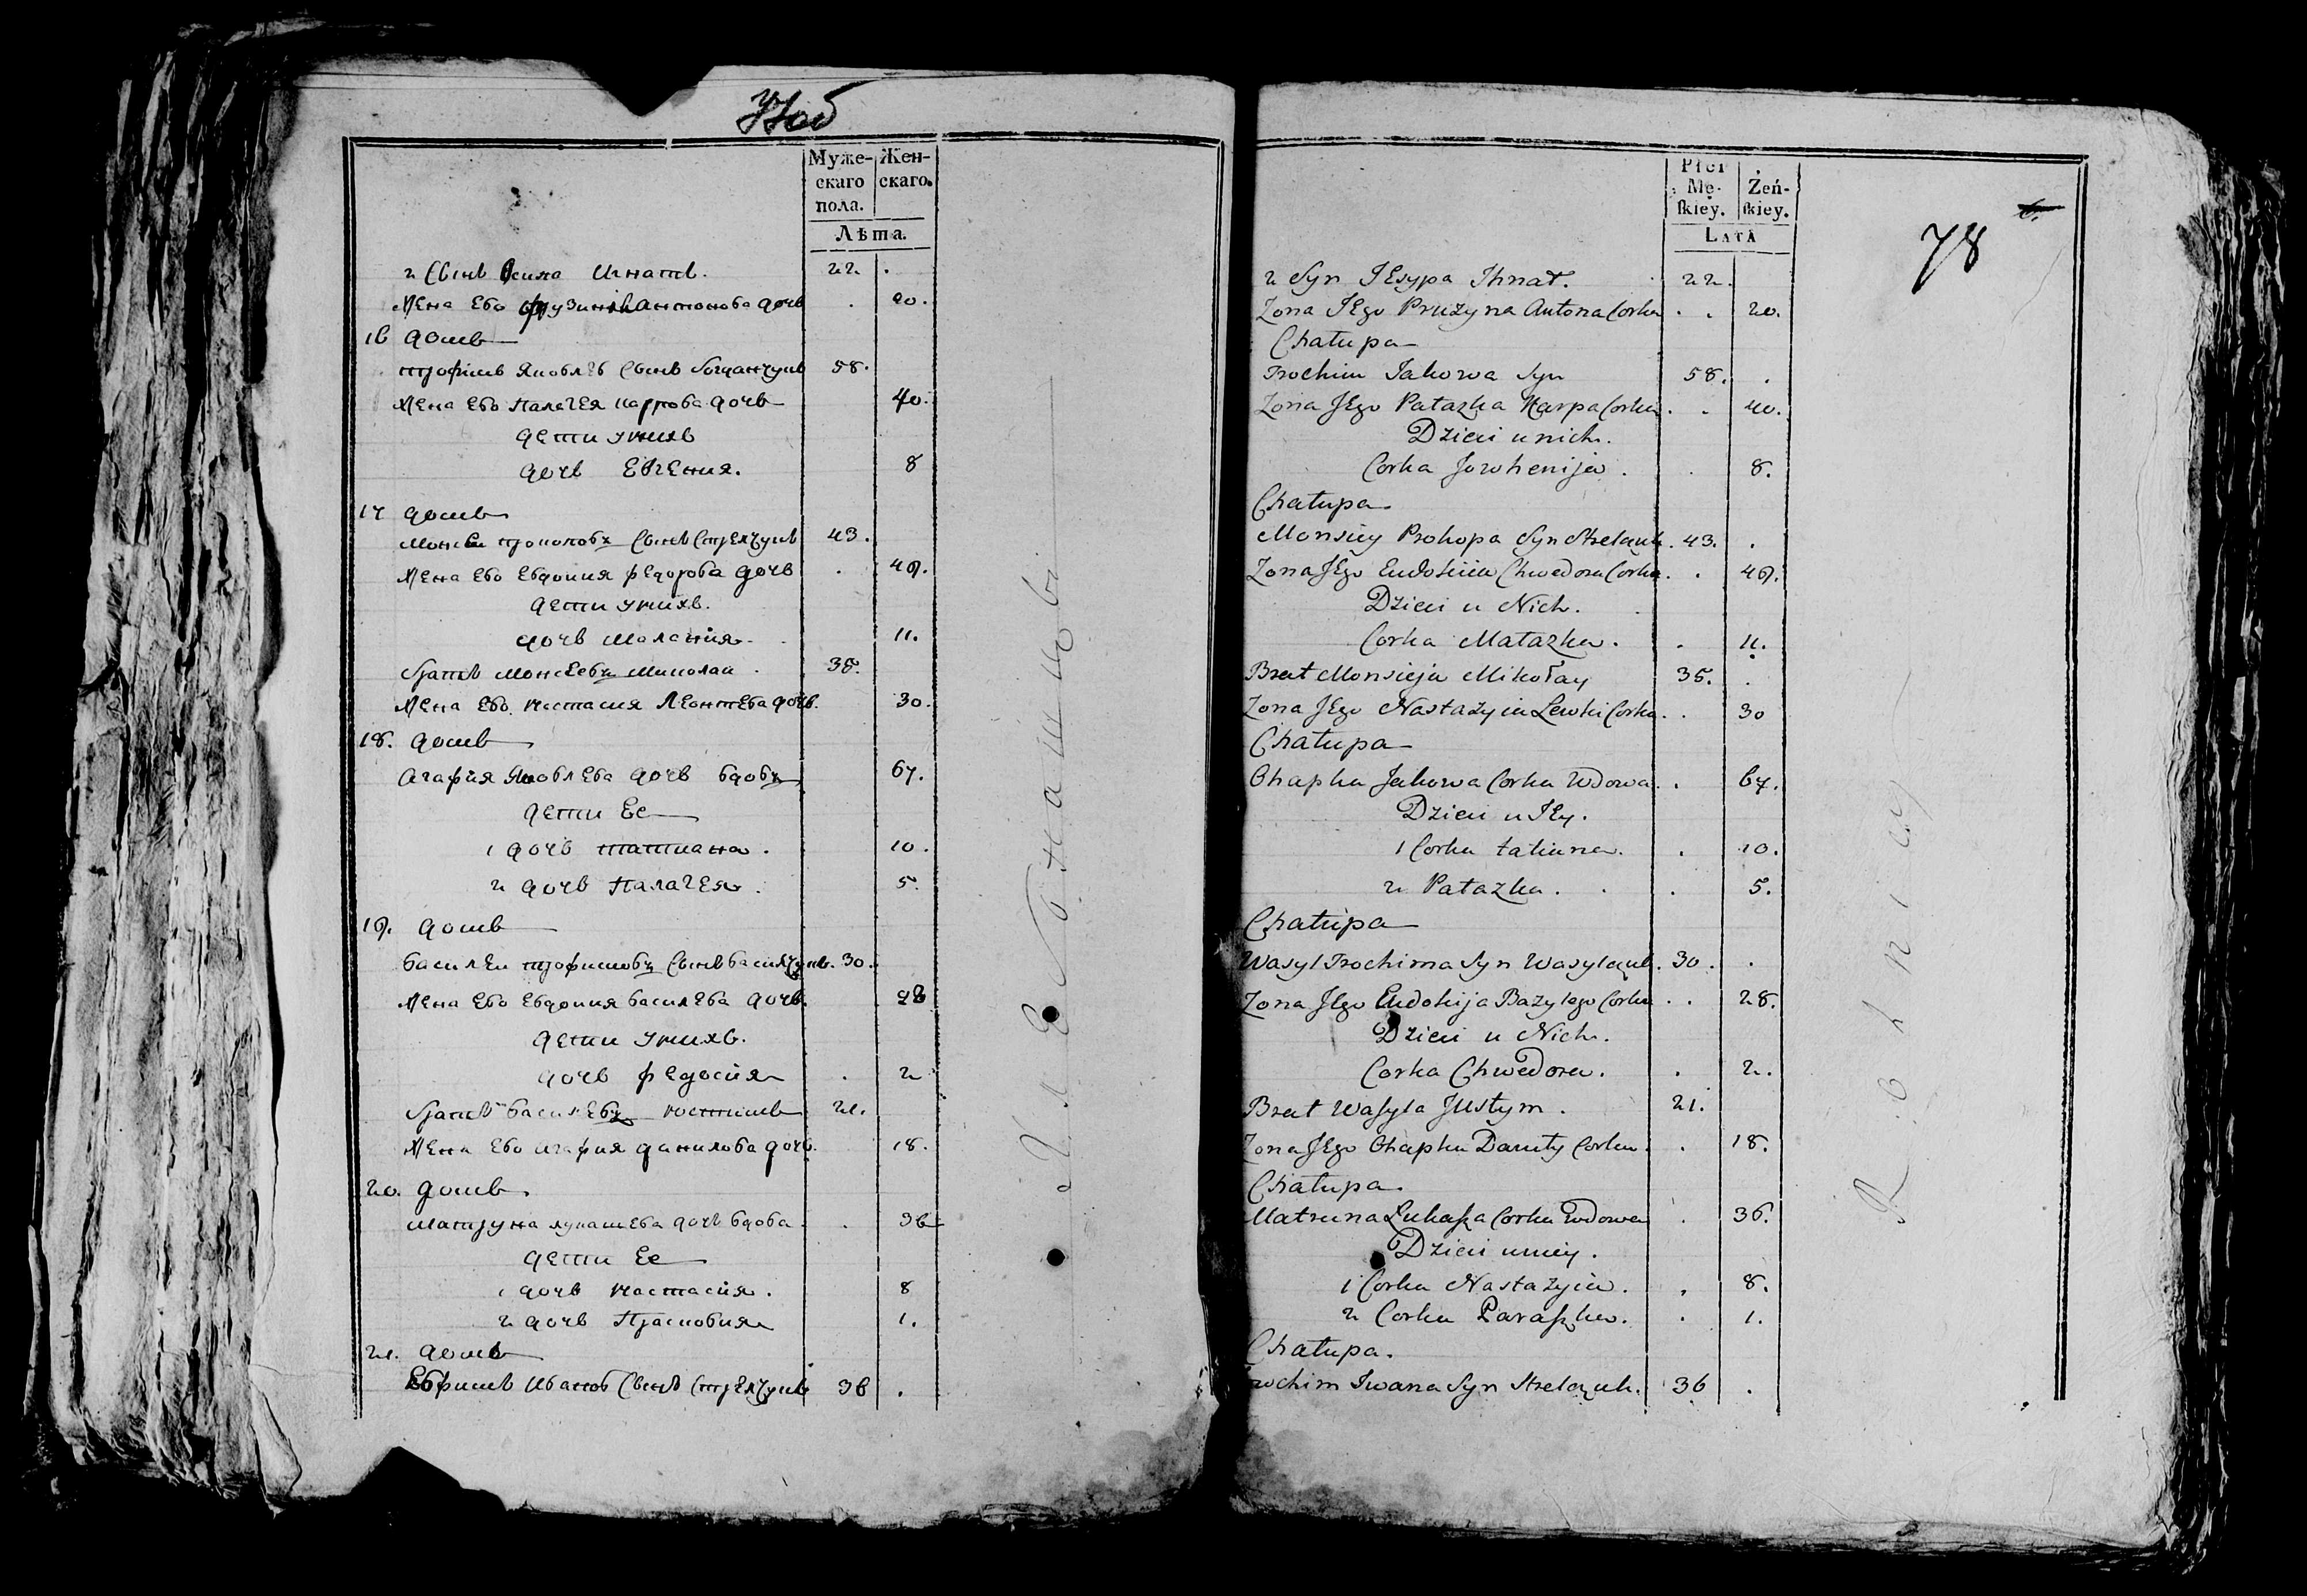 77об
Муже- Жен-
скаго скаго.
пола.
Лѣта.
2 Сынъ Осипа Игнатъ. 22 .
Жена Ево Фрузинія Антонова дочь . 20.
16 домъ
Трофимъ Яковлев Сынъ 58.
Жена Ево Палагея Карпова дочь 40.
дети у нихъ
дочь Евгения. 8
17 домъ
Моисей Прокоповъ Сынъ Стрелчукъ 43.
Жена Ево Евдокия Федорова дочь . 49.
дети у нихъ.
дочь Маланія. 11.
братъ Моисеевъ Миколай . 35.
Жена Ево Настасия Леонтева дочь. 30.
18. домъ
Агафія Яковлева дочь вдова 67.
дети Ее
1 дочь Татиана . 10.
2 дочь Палагея . 5.
19. домъ
Василей Трофимовъ Сынъ Василчукъ. 30.
Жена Ево Евдокия Василева дочь. 28
дети у нихъ.
дочь Федосия . 2
братъ Василевъ Юстимъ 21.
Жена Ево Агафия Данилова дочь. 18.
20. домъ.
Матруна Лукашева дочь вдова . . 36
дети Ее
1 дочь Настасия . 8
2 дочь Прасковия 1.
21. домъ
Евфимъ Иванов Сынъ Стрелчукъ 36 .
Płci
Mę- Żeń-
skiey. skiey.
Lata
78
2 Syn JEsypa Ihnat. 22.
Zona JEgo Pruzyna Antona Corka . . 20.
Chałupa
Trochim Jakowa Syn 58. .
Zona JEgo Pałazka Karpa Corka . . 40.
Dzieci u nich.
Corka Jewhenija . . 8.
Chałupa
Monsiey Prokopa Syn Strelczuk . 43. .
Zona JEgo Eudokiia Chwedora Corka . . 49.
Dzieci u Nich.
Corka Małazka . . 11.
Brat Monsieja Mikołay 35. .
Zona JEgo Nastazyia Lewki Corka . . 30
Chałupa
Ohapka Jakowa Corka Wdowa . . 67.
Dzieci u JEy.
1 Corka tatiana. . 10.
2 Pałazka . . . 5.
Chałupa
Wasyl Trochima Syn Wasylczuk . 30 . .
Zona JEgo Eudokija Bazylego Corka . . 28.
Dzieci u Nich.
Corka Chwedora . . 2.
Brat Wasyla Justym . 21.
Zona JEgo Ohapka Daniły Corka . . 18.
Chałupa.
Matruna Łukasza Corka Wdowa . 36.
Dzieci u niey .
1 Corka Nastazyia . . 8.
2 Corka Paraszka . . 1.
Chałupa.
Jwchim Iwana Syn Strelczuk. 36 .